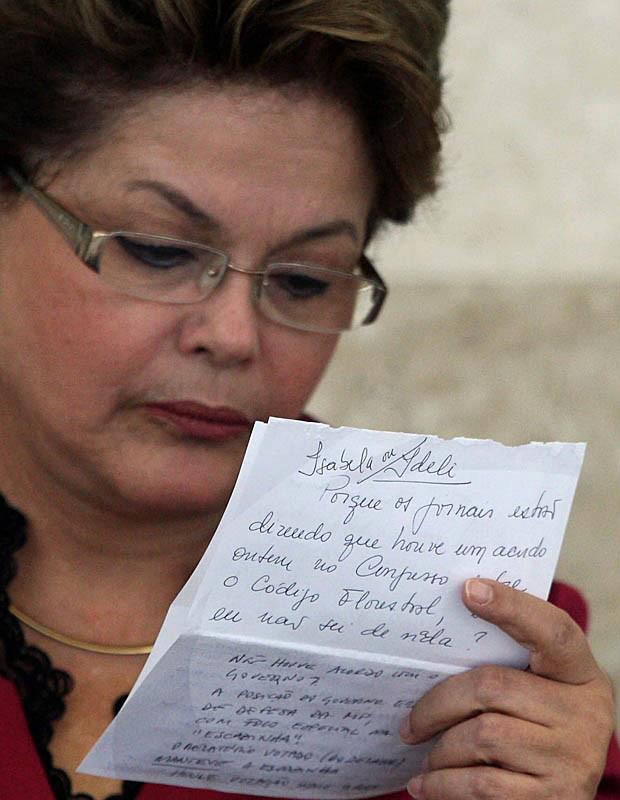 Isabela ou Ideli
Porque os jornais estão
dizendo que houve um acordo
ontem no Congresso sobre
o Código Florestal,
eu não sei de nada?
NÃO HOUVE ACORDO COM O
GOVERNO?
A POSIÇÃO DO GOVERNO É
DE DEFESA DA MP,
COM FOCO ESPECIAL NA
"ESCADINHA"!
O RELATÓRIO VOTADO
MANTEVE A ESCADINHA
HOUVE